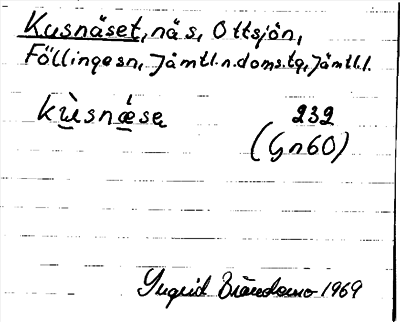 Kusnäset, näs, Ottsjön,
Föllinge sn, Jämtl. n. doms. tg, Jämtl. l.
kùsnǽse 232
(Gn 60)
Ingrid 1969